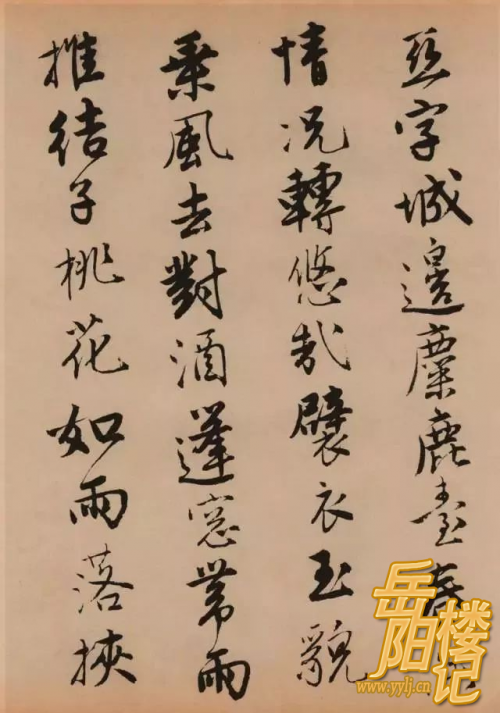 亞字城邊麋鹿臺春
情況轉悠哉襞衣玉貌
乘風去對酒蓬窓帶雨
推結子桃花如雨落挾
岳阳楼记
www.yylj.cn